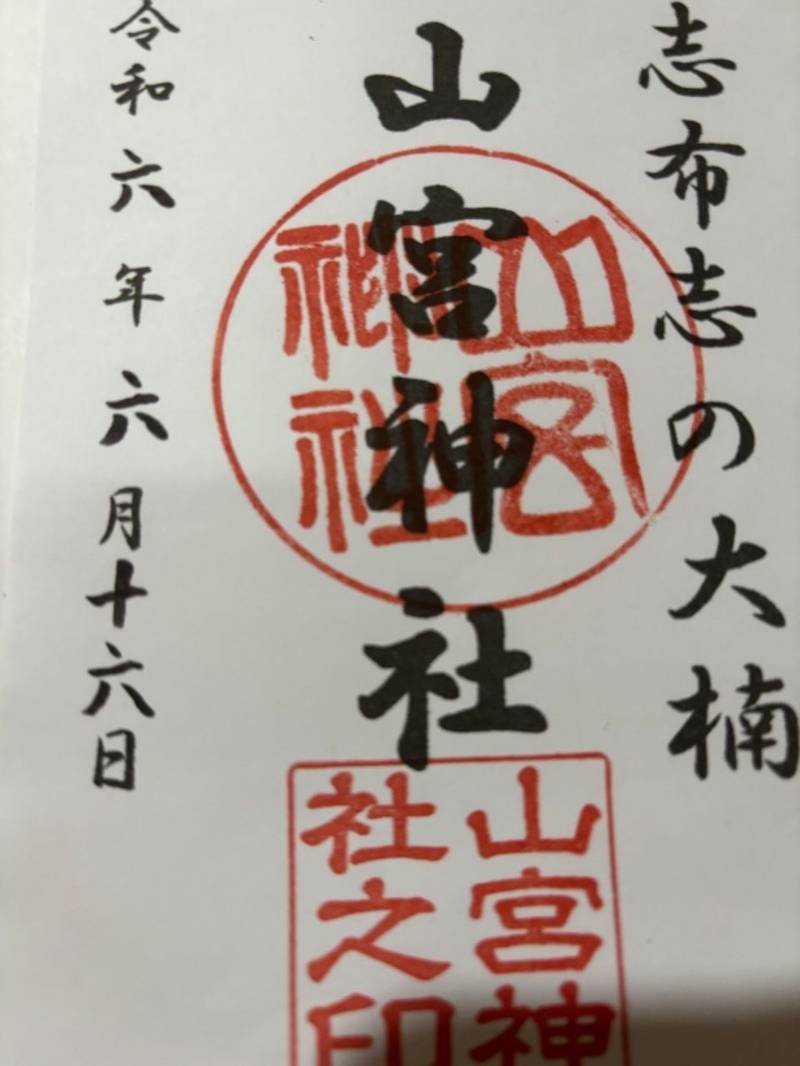 志布志の大楠
山宮神社
令和六年六月十六日
山宮
神社
山宮神
社之印